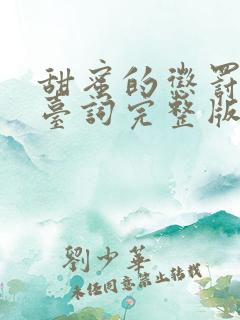 甜蜜的懲罰
臺詞完整版
劉少華
未经同意禁止转载